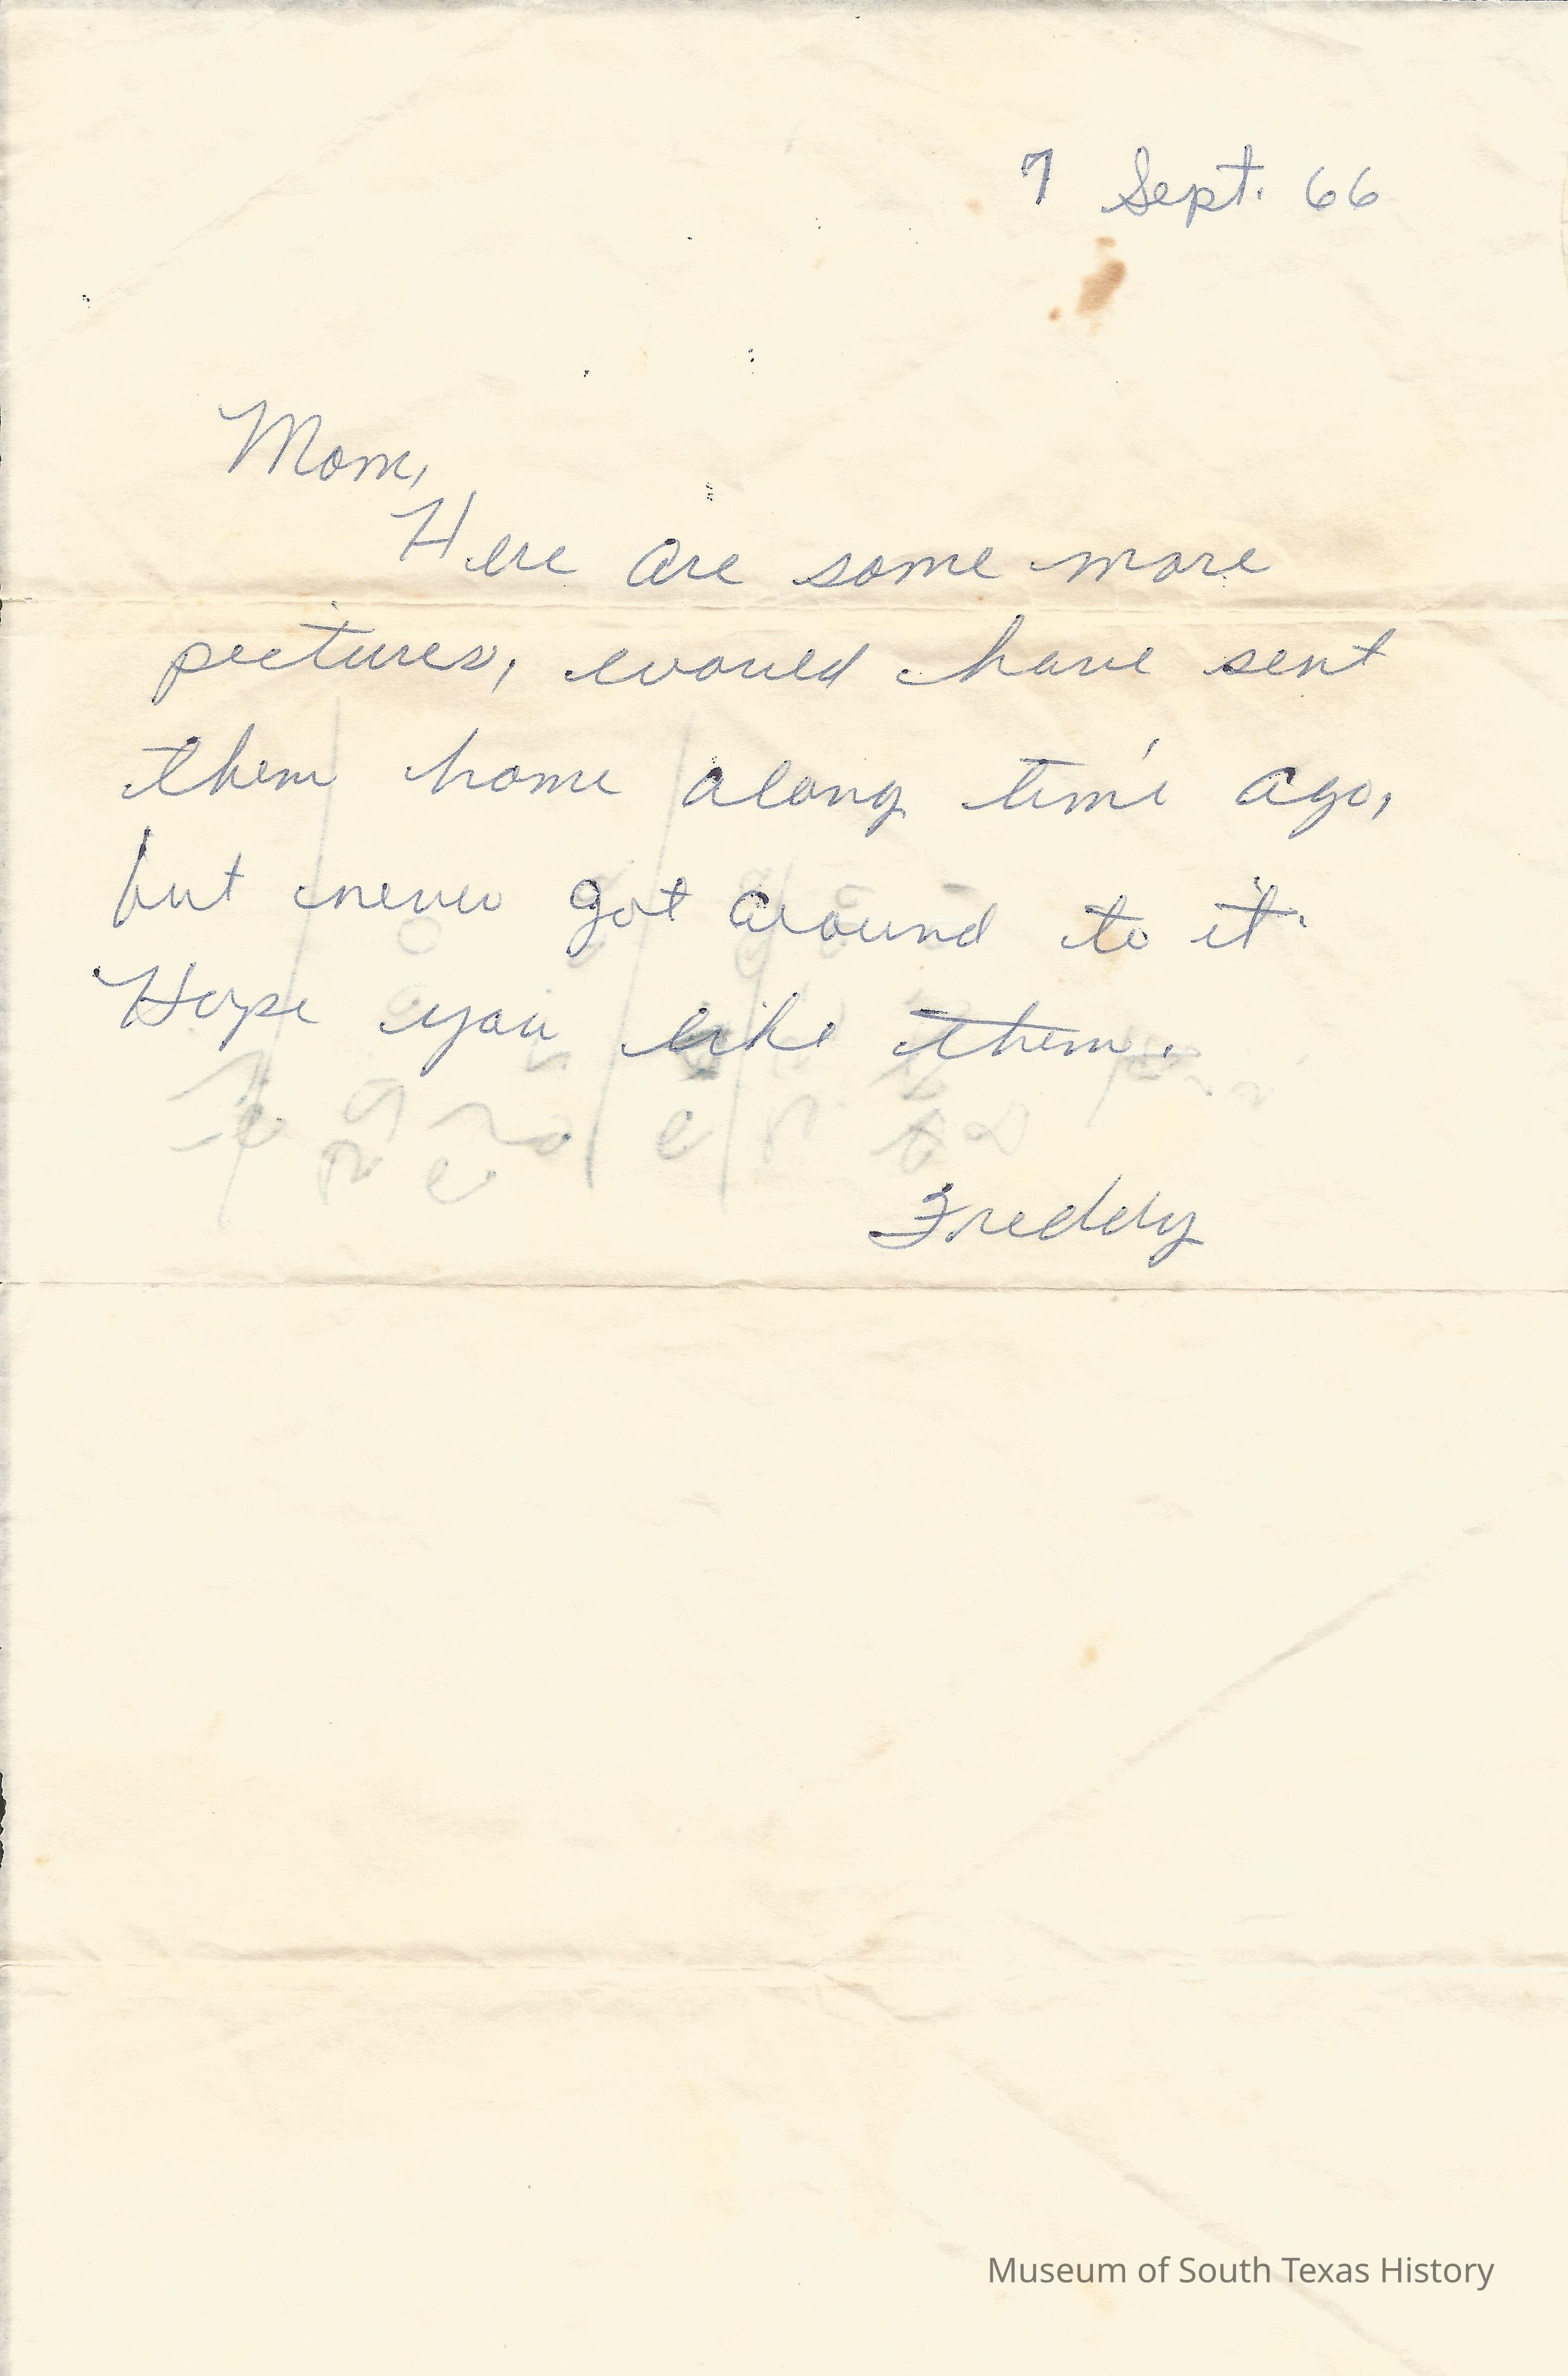 7 Sept. 66
Mom,
Here are some more
pictures, would have sent
them home along time ago,
but never got around to it.
Hope you like them.
Freddy
Museum of South Texas History